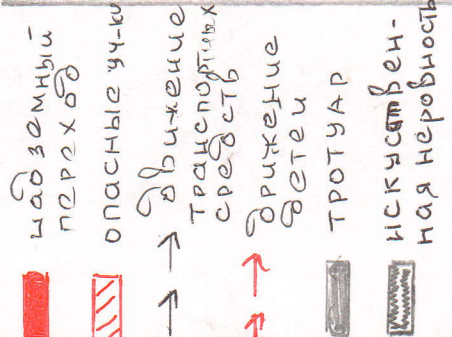 надземный
переход
опасные уч-ки
движение
транспортных
средств
движение
детей
тротуар
искуствен-
ная неровность